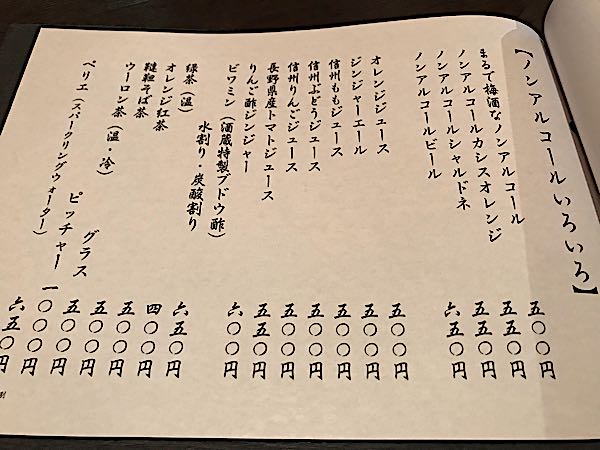 【ノンアルコールいろいろ】
まるで梅酒なノンアルコール 五〇〇円
ノンアルコールカシスオレンジ 五五〇円
ノンアルコールシャルドネ 五五〇円
ノンアルコールビール 六五〇円
オレンジジュース 五〇〇円
ジンジャーエール 五〇〇円
信州ももジュース 五〇〇円
信州ぶどうジュース 五〇〇円
信州りんごジュース 五〇〇円
長野県産トマトジュース 五五〇円
りんご酢ジンジャー 六〇〇円
ビワミン(酒蔵特製ブドウ酢)
水割り・炭酸割り 六五〇円
緑茶(温) 四〇〇円
オレンジ紅茶 五〇〇円
韃靼そば茶 五〇〇円
ウーロン茶(温・冷) グラス 五〇〇円
ピッチャー 一〇〇〇円
ペリエ(スパークリングウォーター) 六五〇円